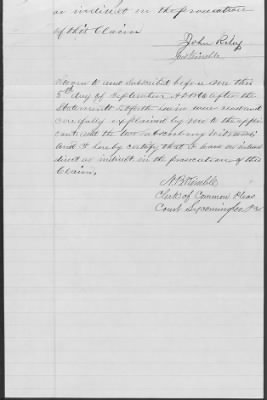 or indirect in the prosecution
of this Claim
John Riley
Sworn to and subscribed before me this
5th day of September A D after the
Statements were
carefully explained by me to the appli
cant and the two subscribing witnesses
And I hereby certify that I have no interest
direct or indirect in the prosecution of this
Claim.
Clerk of Common Pleas
Court Lycoming Co Pa